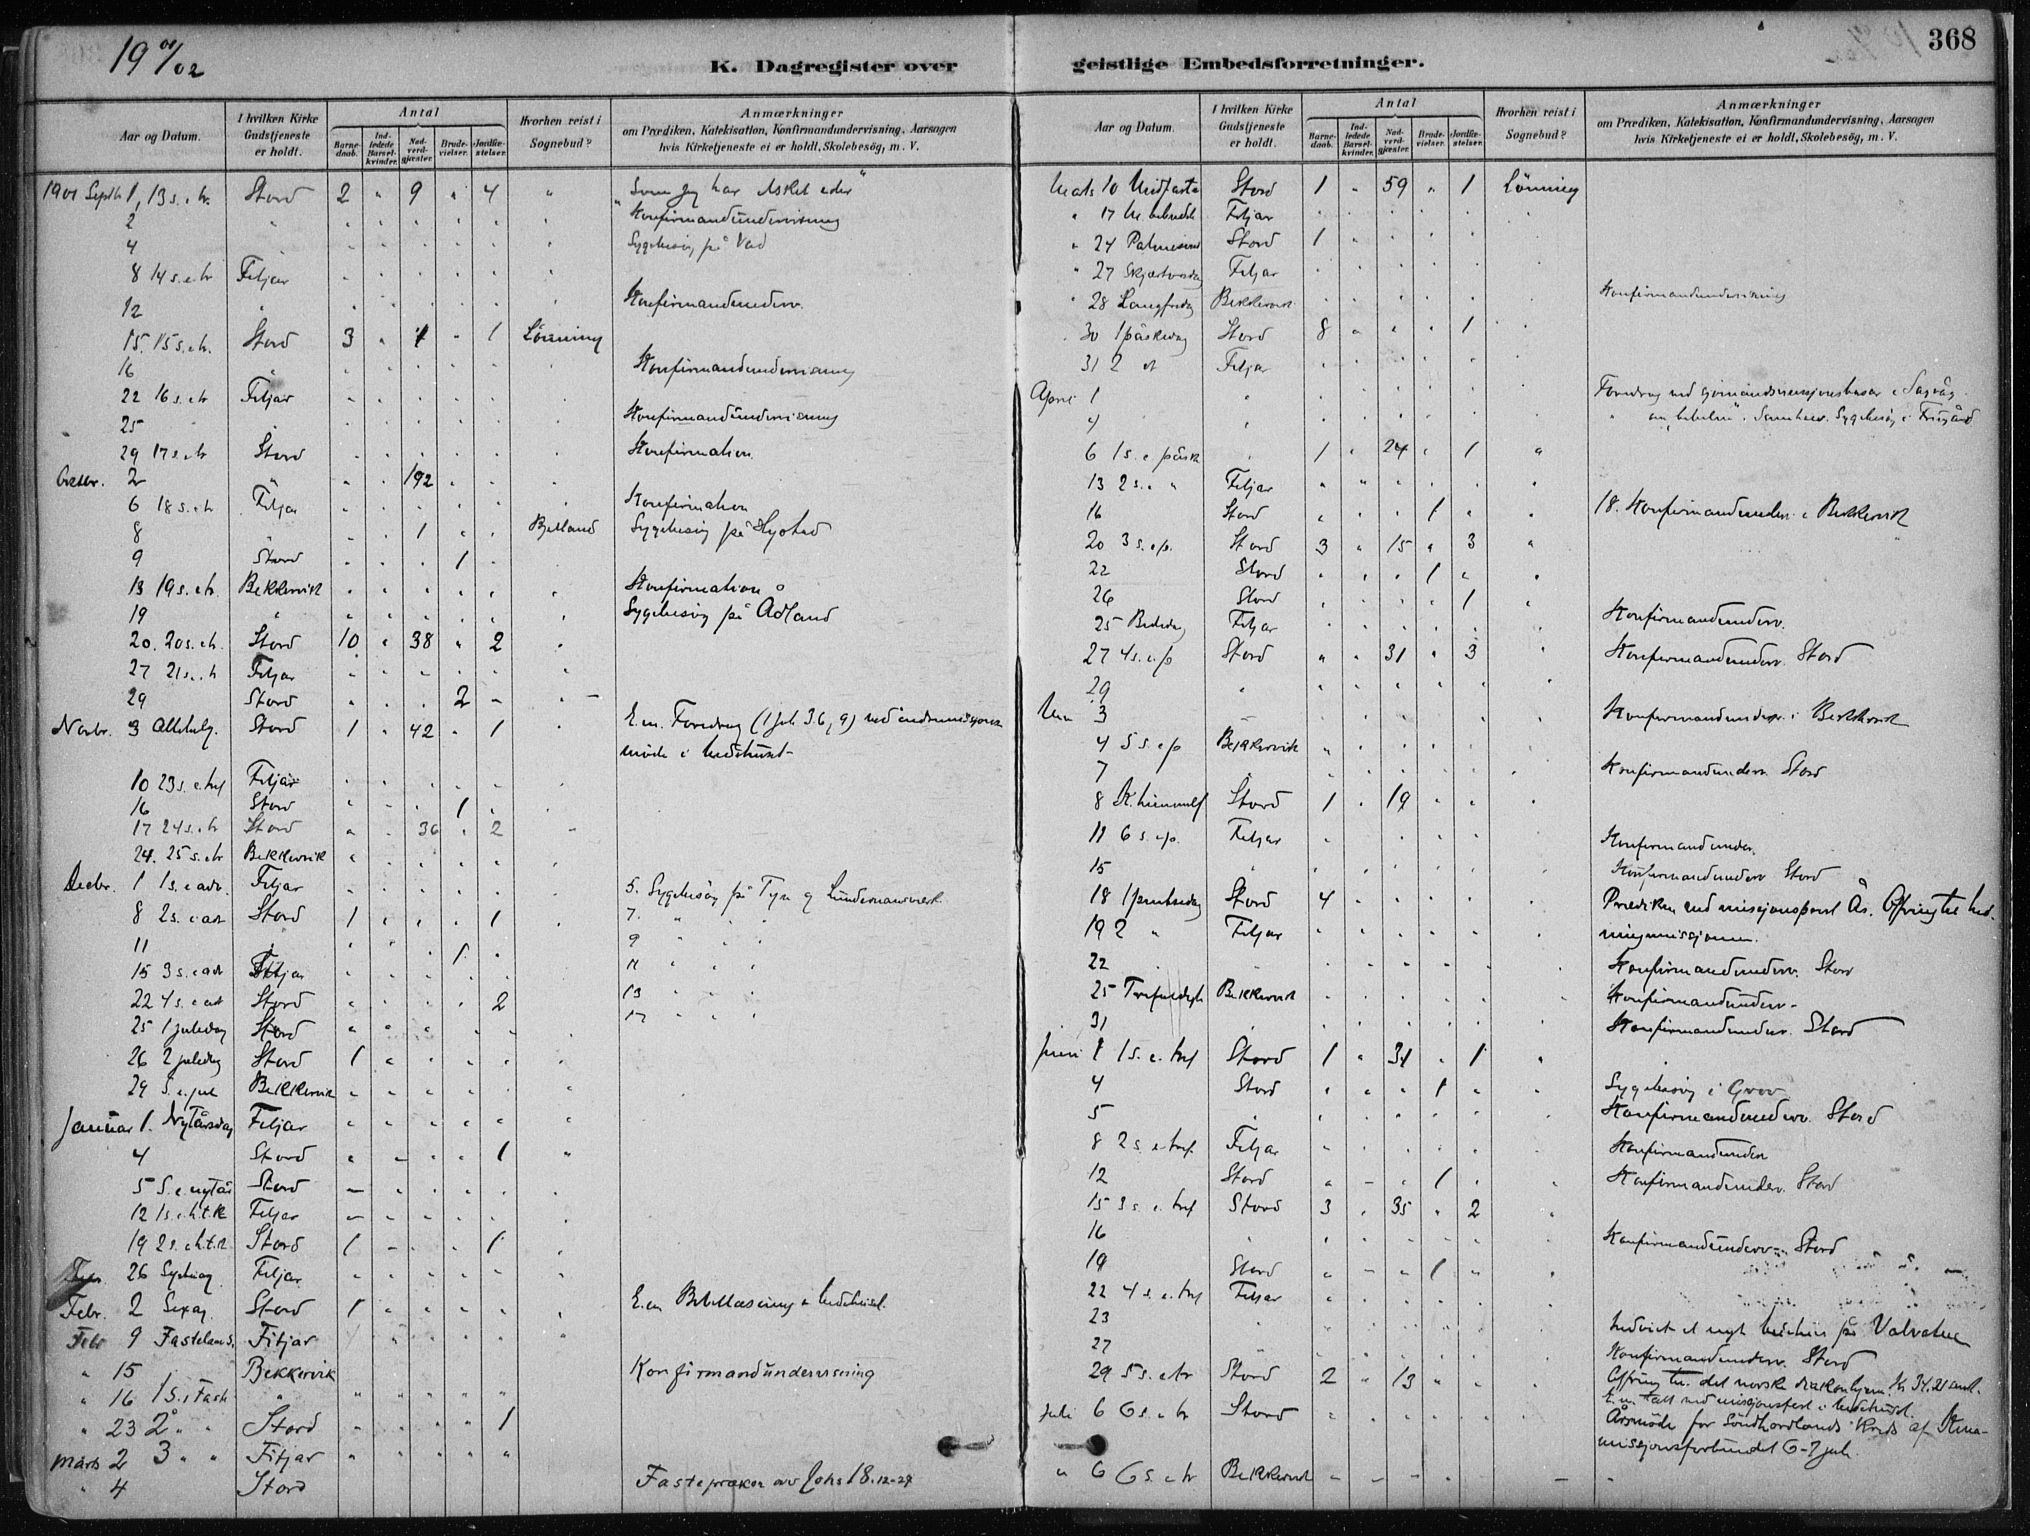 19 01/02
K. Dagregister over
Aar og Datum. I hvilken Kirke Gudstjeneste er holdt. Antal Barnedaab. Indledede Barselkvinder. Nadverdgjæster. Brudevielser. Jordfæstelser. Hvorhen reist i Sognebud? Anmærkninger om Prædiken, Katekisation, Konfirmandundervisning, Aarsagen hvis Kirketjeneste ei er holdt, Skolebesög, m. V.
1901 Septb 1, 13 s. e. tr. Stord 2 " 9 " 4 " "Som jeg har elsket eder"
2 " Konfirmandundervisning
4 Sygebesög på Vad
8 14 s. e. tr Fitjar
12 " Konfirmandunderv.
15. 15 s. e. tr. Stord 3 " 1 " 1 Lönning
16 " Konfirmandundervisning
22 16 s. e. tr Fitjar
25 " Konfirmandundervisning
29 17 s. e. tr Stord Konfirmation.
Octbr. 2 " 192
6 18 s. e. tr Fitjar Konfirmation
8 " 1 Sygebesög på Hystad
9 Stord 1
13 19 s. e. tr. Bekkervik Konfirmation
19 " Sygebesög på Ådland
20. 20 s. e. tr. Stord 10 " 38 " 2
27 21 s. e. tr Fitjar
29 Stord 2
Novbr. 3 Allehelg. Stord 1 " 42 " 1 E.m. Foredrag (1 Joh. 3.6, 9) ved indremisjons
möde i bedehuset
10 23 s. e. tref Fitjar
16 Stord 1
17 24 s. e. tr Stord 36 " 2
24. 25 s. e. tr Bekkervik
Decbr. 1 1 s. e adv. Fitjar 5. Sygebesög på Tyse og Lundemansverk
8 2 s. e. adv Stord 1 1 7. " " "
11 1 9 " " "
15 3 s. e adv Fitjar 11 " " "
22 4 s. e adv Stord 2 13 " " "
25 1 juledag Stord 17 " " "
26 2 juledag Stord 1
29 S. e. jul Bekkervik
Januar 1. Nytårsdag Fitjar
4 Stord 1
5 S. e. nytår Stord
12 1 s. e. h.t.k Fitjar
19 2 s. e. h.t.k. Stord 1 1
26 Fitjar
Febr. 2 Sexag. Stord 1 E.m Bibellæsning i bedehuset.
Febr 9 Fastelavns. Fitjar
" 15 Bekkervik Konfirmandundervisning
" 16 1 S. i Fast "
" 23 2 " " Stord 1
Marts 2 3 " " Fitjar
" 4 Stord Fastepræken over Johs 18. 12-27
368
geistlige Embedsforretninger.
Aar og Datum. I hvilken Kirke Gudstjeneste er holdt. Antal Barnedaab. Indledede Barselkvinder. Nadverdgjæster. Brudevielser. Jordfæstelser. Hvorhen reist i Sognebud? Anmærkninger om Prædiken, Katekisation, Konfirmandundervisning, Aarsagen hvis Kirketjeneste ei er holdt, Skolebesög, m. V.
Marts 10 Midfaste Stord 1 " 59 " 1 Lönning
" 17 M. bebud Fitjar
" 24 Palmesönd Stord 1
" 27 Skjærtorsdag Fitjar
" 28 Langfredag Bekkervik Konfirmandundervisning
30 1 påskedag Stord 8 " " " 1
31 2 " Fitjar
April 1 " i Sagvåg
4 "
6 1 s. e. påsk " 1 " 24 " 1 "
13 2 s. " " Fitjar
16 Stord 1 18. Konfirmandunderv. i Bekkervik
20 3 s. e. p. Stord 3 " 15 " 3 "
22 Stord 1
26 Stord 1
25 Bededag Fitjar Konfirmandunderv.
27 4 s. e. p Stord " " 31 " 3 Konfirmandunderv. Stord
29 "
Mai 3 Konfirmandunderv. i Bekkervik
4 5 s. e p Bekkervik
7 Konfirmandunderv. Stord
8 K. himmelf Stord 1 " 19
11 6 s. e. p. Fitjar Konfirmandunder.
15 " Konfirmandunderv Stord
18 1 pintsedag Stord 4 Prædiken ved misjonsfest Ås. Ofring til hed-
19 2 " Fitjar ningmissjonen.
22 Konfirmandunderv. Stord
25 Trefoldigh Bekkervik Konfirmandunderv.
31 Konfirmandunderv. Stord
Juni 1 1 s. e. tref Stord 1 " 34 " 1
4 Stord 1 Sygebesög i Grov
5 " Konfirmandunderv. Stord
8 2 s. e tref. Fitjar Konfirmandunder
12 Stord 1 Konfirmandunderv. Stord
15 3 s. e. tref Stord 3 " 35 " 2
16 " Konfirmandunderv. Stord
19 Stord 1
22 4 s. e. tref Fitjar
23 Indviet et nyt bedehus på Valvatne
27 Konfirmandunderv. Stord
29 5 s. e tr Stord 2 " 13 " Offring til det norske diakonhjem. Kr 34.21
E.m. talt ved misjonsfest i bedehuset.
Juli 6 6 s. e. tr Stord Årsmöde for Söndhordlands Kreds af Kina-
misjonsforbundet 6-7 juli.
" 6 6 s. e tr Bekkervik